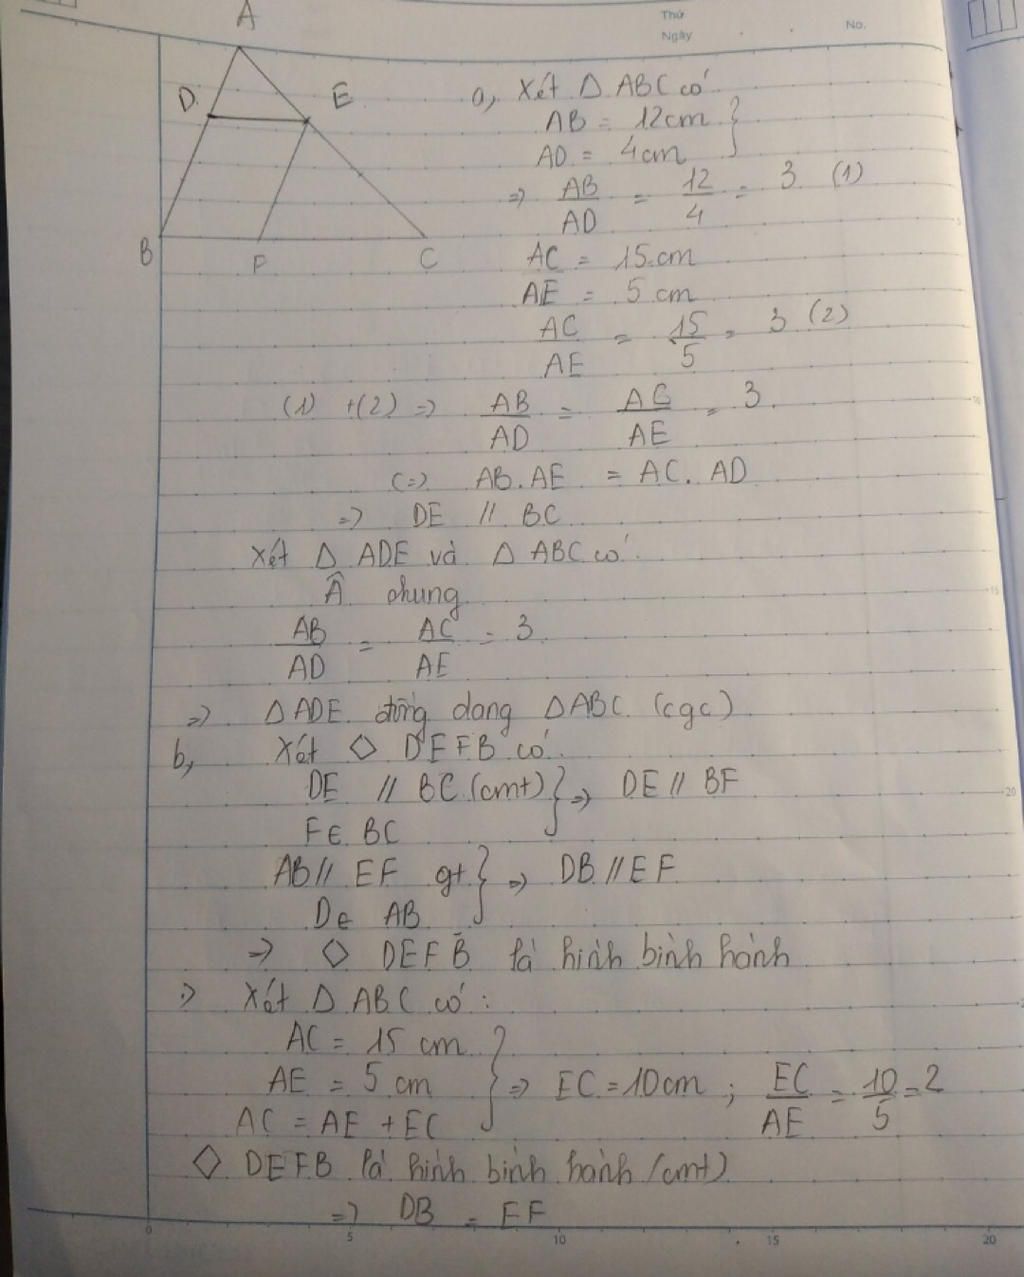 Thứ
Ngày
No.
A
D.
E
B
F
C
a, Xét Δ ABC có
AB = 12cm }
AD = 4cm
=> AB/AD = 12/4 = 3 (1)
AC = 15.cm
AE = 5 cm
AC/AE = 15/5 = 3 (2)
(1) +(2) => AB/AD = AC/AE = 3.
(=) AB.AE = AC. AD
=> DE // BC
Xét Δ ADE và Δ ABC có.
Â chung
AB/AD = AC/AE = 3.
=> Δ ADE. đồng dạng ΔABC. (cgc)
b, Xét ◇ DEFB có.
DE // BC.(cmt) } => DE // BF
F∈ BC
AB// EF gt } => DB // EF
D∈ AB
=> ◇ DEFB là hình bình hành
=> Xét Δ ABC có :
AC = 15 cm
AE = 5 cm } => EC = 10cm ; EC/AE = 10/5 = 2
AC = AE + EC
◇ DEFB là hình bình hành (cmt)
=> DB = EF
0 5 10 15 20